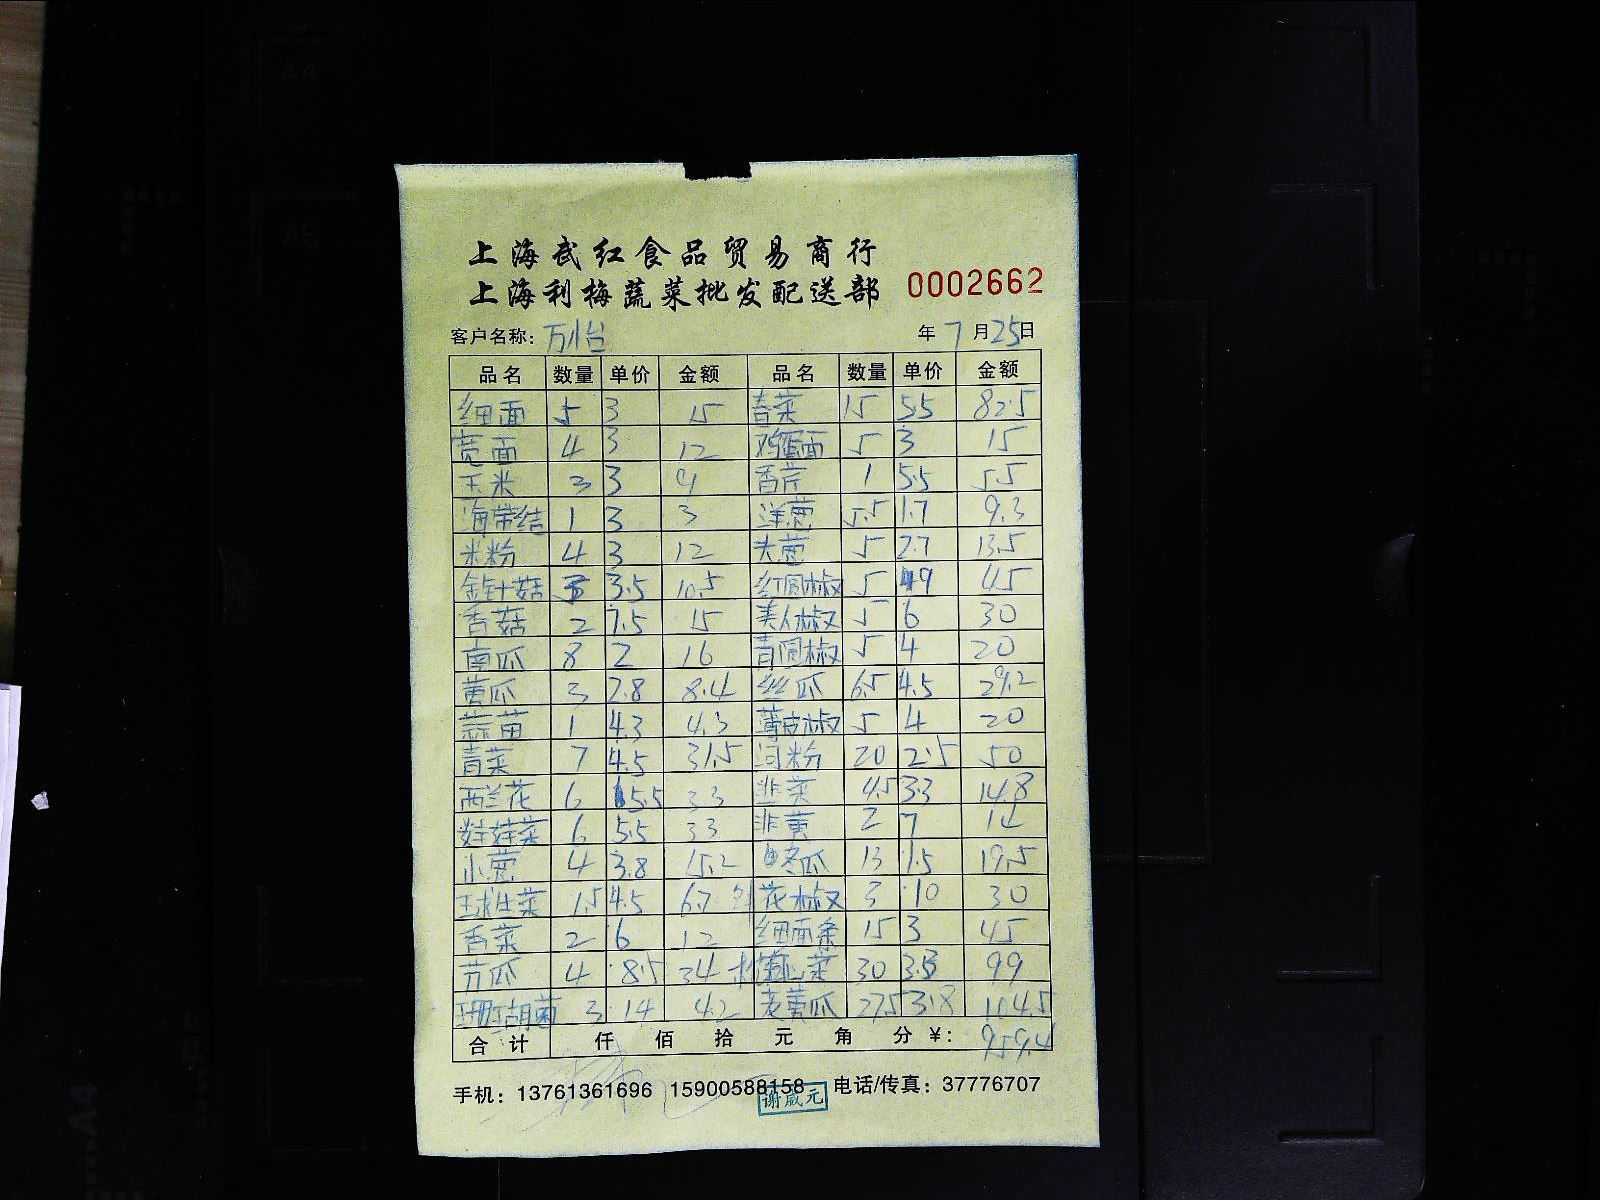 上海武红食品贸易商行
上海利梅蔬菜批发配送部 0002662
客户名称: 万怡 年 7 月 25 日
品名 数量 单价 金额 品名 数量 单价 金额
细面 5 3 15 青菜 15 5.5 82.5
宽面 4 3 12 鸡蛋面 5 3 15
玉米 3 3 9 香芹 1 5.5 5.5
海带结 1 3 3 洋葱 5.5 1.7 9.3
米粉 4 3 12 大葱 5 2.7 13.5
金针菇 3 3.5 10.5 红圆椒 5 9 45
香菇 2 7.5 15 美人椒 5 6 30
南瓜 8 2 16 青圆椒 5 4 20
黄瓜 3 2.8 8.4 丝瓜 6.5 4.5 29.2
蒜苗 1 4.3 4.3 薄皮椒 5 4 20
青菜 7 4.5 31.5 河粉 20 2.5 50
西兰花 6 5.5 33 韭菜 4.5 3.3 14.8
娃娃菜 6 5.5 33 韭黄 2 7 14
小葱 4 3.8 15.2 冬瓜 13 1.5 19.5
球生菜 1.5 4.5 6.7 花椒 3 10 30
香菜 2 6 12 细面条 15 3 45
苦瓜 4 8.5 34 菜 30 3.3 99
珊瑚菌 3 14 42 黄瓜 27.5 3.8 104.5
合计 仟 佰 拾 元 角 分 ¥: 959.4
手机: 13761361696 15900588158 电话/传真: 37776707
谢咸元